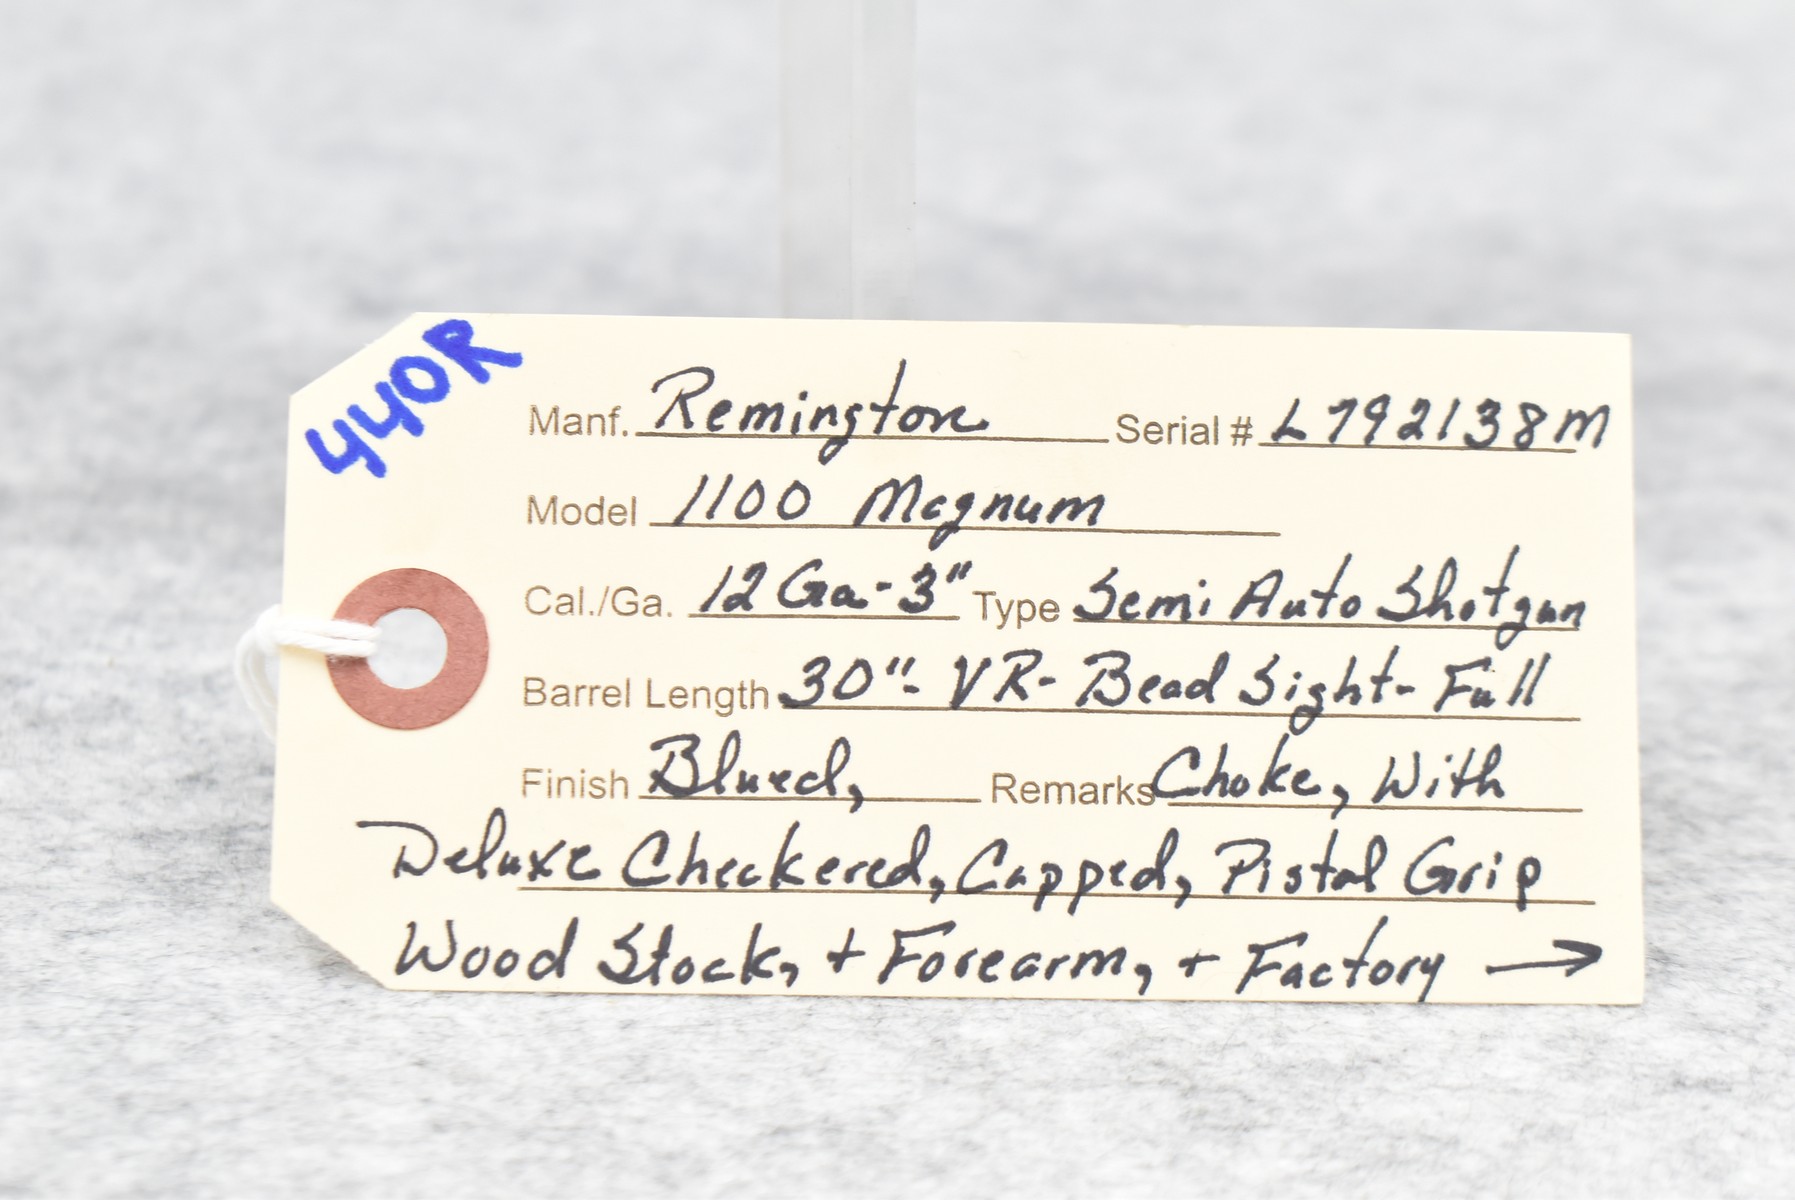 440R
Manf. Remington Serial # L792138M
Model 1100 Magnum
Cal./Ga. 12 Ga-3" Type Semi Auto Shotgun
Barrel Length 30"- VR- Bead Sight- Full
Finish Blued, Remarks Choke, With
Deluxe Checkered, Capped, Pistol Grip
Wood Stock, + Forearm, + Factory →